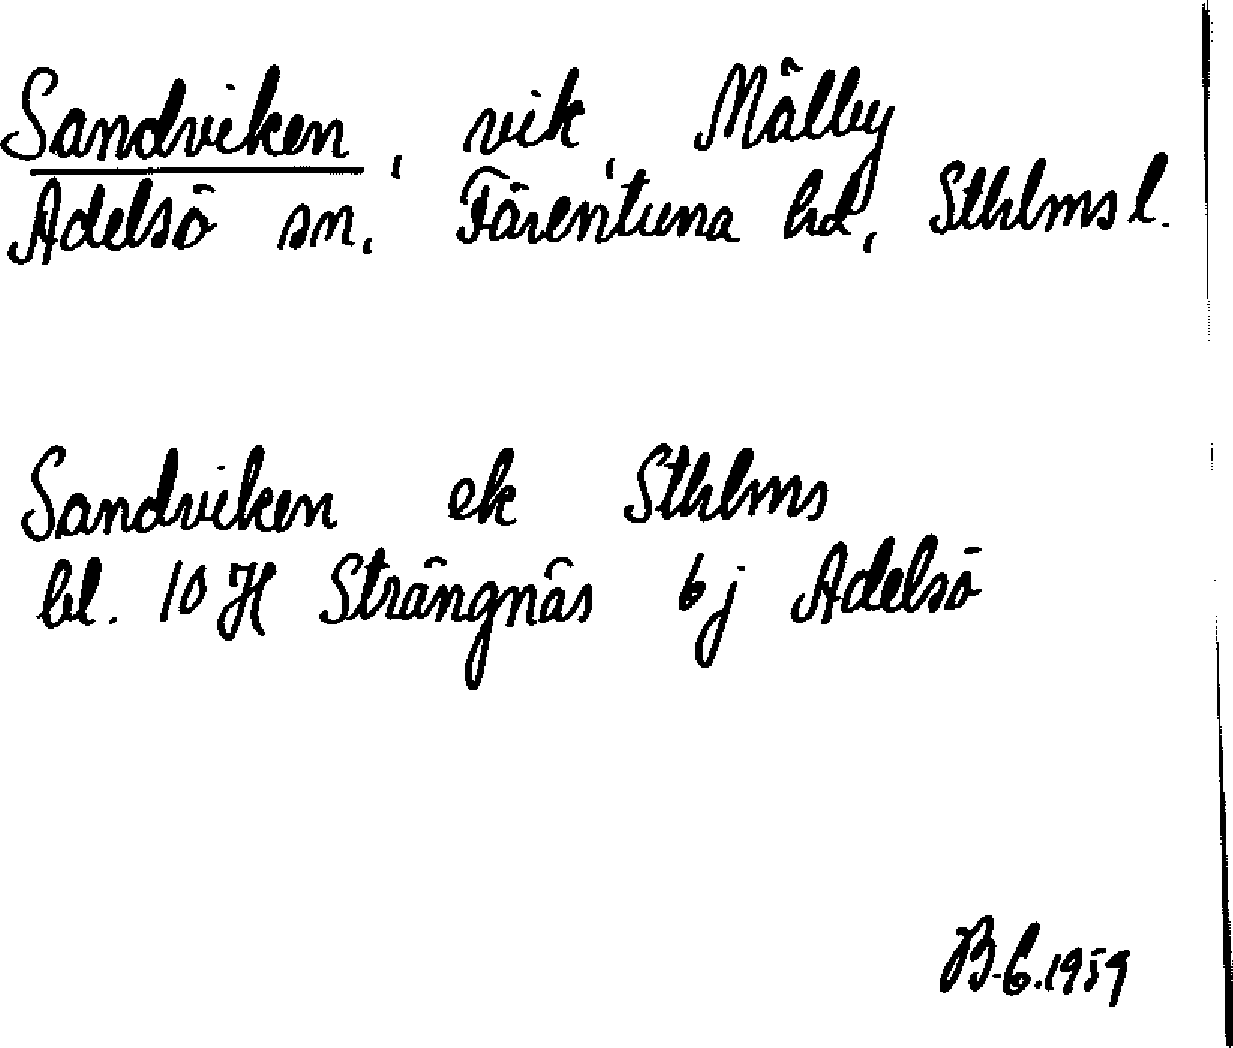 Sandviken, vik, Mälby
Adelsö sn, Färentuna hd, Sthlms l.
Sandviken ek Sthlms
bl. 10 H Strängnäs 6j Adelsö
B-C. 1959